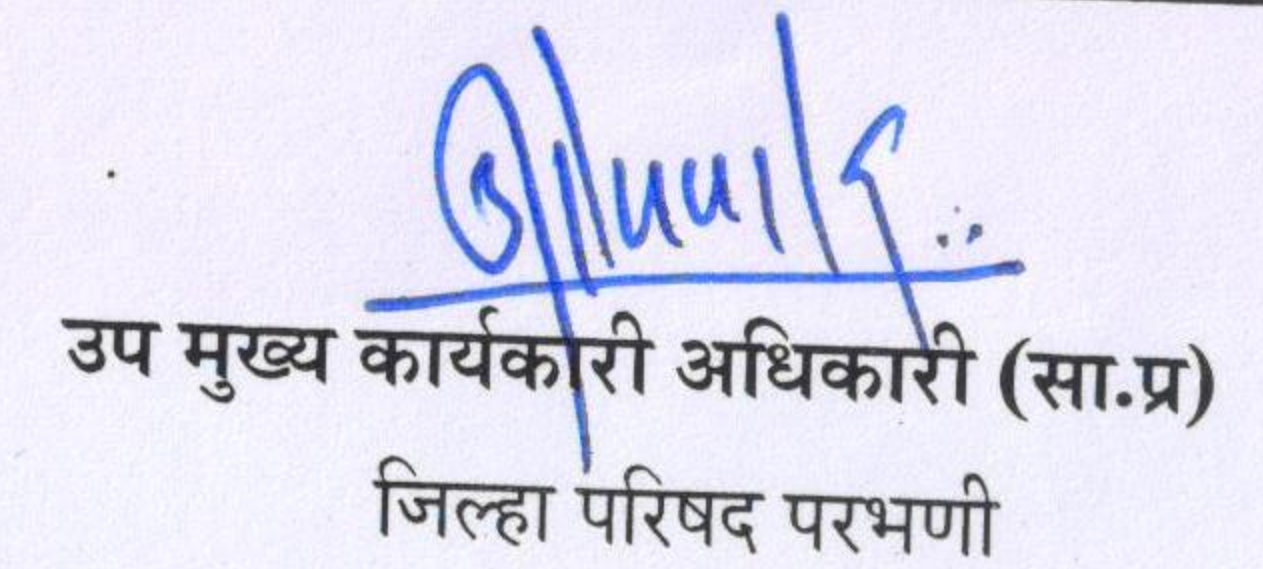 उप मुख्य कार्यकारी अधिकारी (सा.प्र)
जिल्हा परिषद परभणी